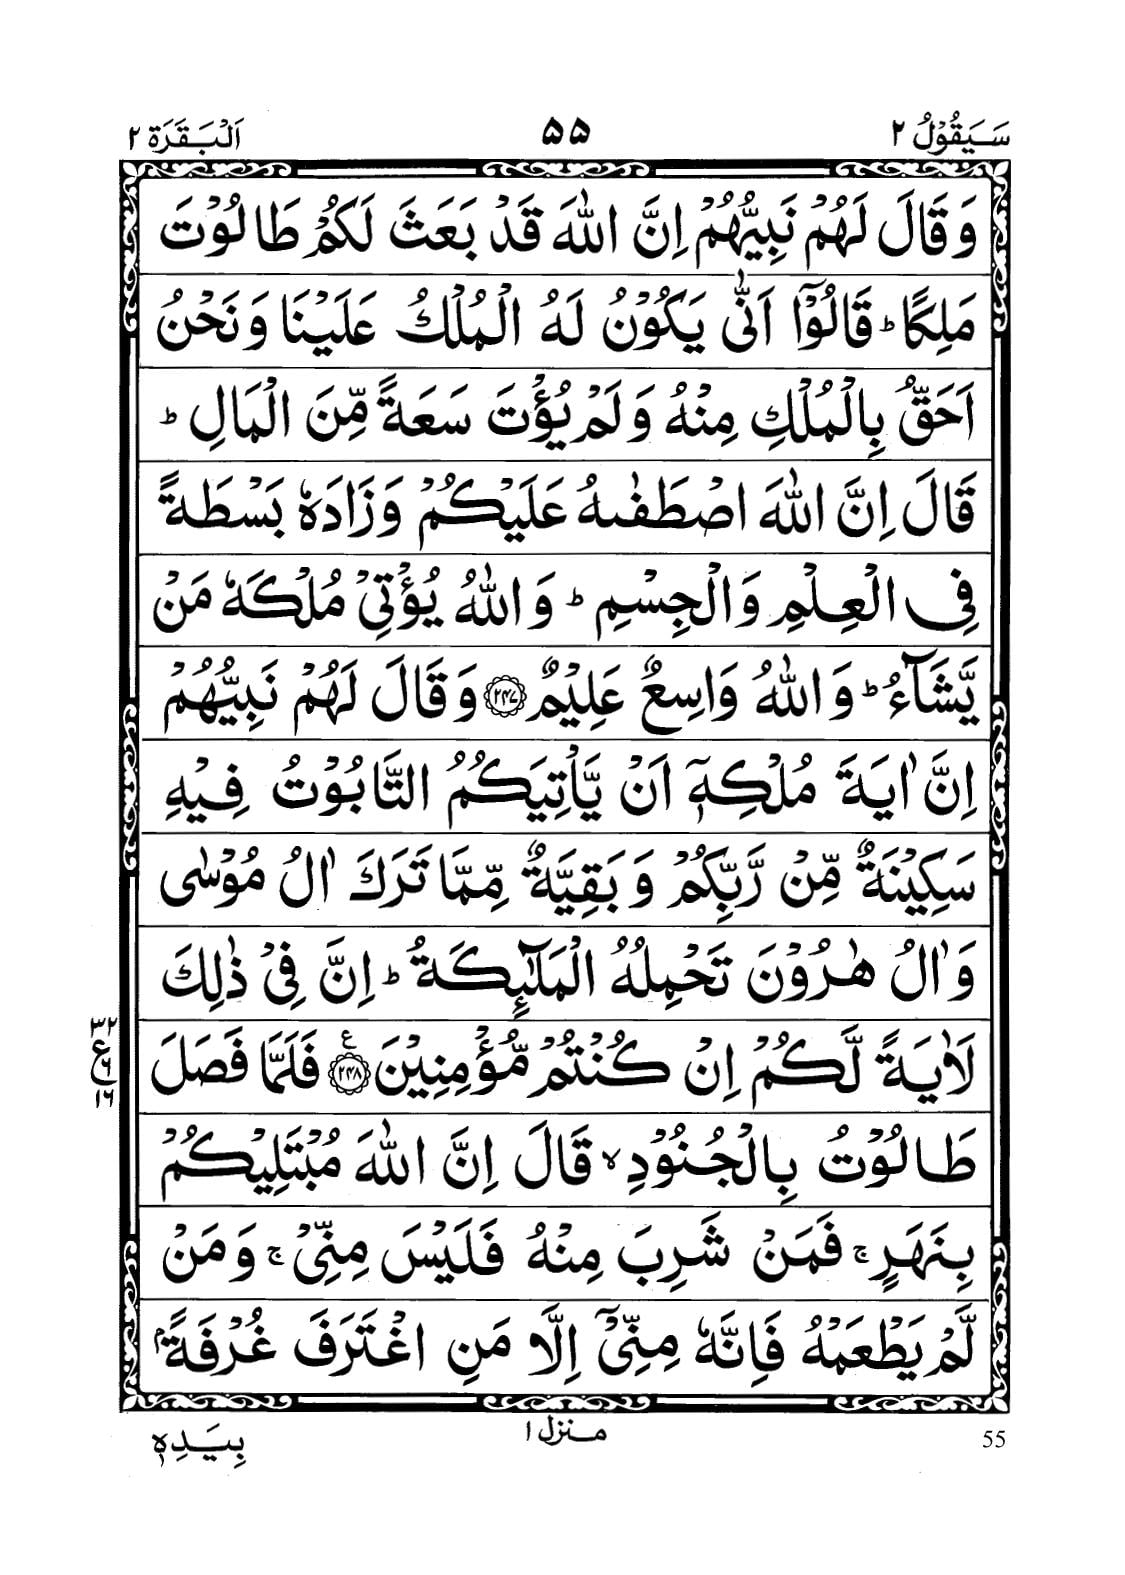 سَيَقُوْلُ ۲ ۵۵ اَلْبَقَرَة ۲
وَقَالَ لَهُمْ نَبِيُّهُمْ اِنَّ اللّٰهَ قَدْ بَعَثَ لَكُمْ طَالُوْتَ
مَلِكًا ؕ قَالُوْۤا اَنّٰى يَكُوْنُ لَهُ الْمُلْكُ عَلَيْنَا وَنَحْنُ
اَحَقُّ بِالْمُلْكِ مِنْهُ وَلَمْ يُؤْتَ سَعَةً مِّنَ الْمَالِ ؕ
قَالَ اِنَّ اللّٰهَ اصْطَفٰىهُ عَلَيْكُمْ وَزَادَهٗ بَسْطَةً
فِى الْعِلْمِ وَالْجِسْمِ ؕ وَاللّٰهُ يُؤْتِىْ مُلْكَهٗ مَنْ
يَّشَآءُ ؕ وَاللّٰهُ وَاسِعٌ عَلِيْمٌ ﴿۲۴۷﴾ وَقَالَ لَهُمْ نَبِيُّهُمْ
اِنَّ اٰيَةَ مُلْكِهٖۤ اَنْ يَّاْتِيَكُمُ التَّابُوْتُ فِيْهِ
سَكِيْنَةٌ مِّنْ رَّبِّكُمْ وَبَقِيَّةٌ مِّمَّا تَرَكَ اٰلُ مُوْسٰى
وَاٰلُ هٰرُوْنَ تَحْمِلُهُ الْمَلٰٓئِكَةُ ؕ اِنَّ فِىْ ذٰلِكَ
لَاٰيَةً لَّكُمْ اِنْ كُنْتُمْ مُّؤْمِنِيْنَ ﴿۲۴۸﴾ ع فَلَمَّا فَصَلَ
۳۲
ع
۶
۱۶
طَالُوْتُ بِالْجُنُوْدِ ۙ قَالَ اِنَّ اللّٰهَ مُبْتَلِيْكُمْ
بِنَهَرٍ ۚ فَمَنْ شَرِبَ مِنْهُ فَلَيْسَ مِنِّىْ ۚ وَمَنْ
لَّمْ يَطْعَمْهُ فَاِنَّهٗ مِنِّىْۤ اِلَّا مَنِ اغْتَرَفَ غُرْفَةًۢ
55 منزل ۱ بِيَدِهٖ